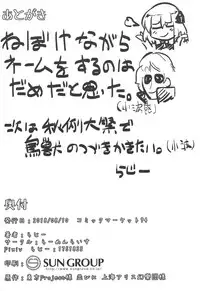 あとがき
ねぼけながら
ネームをするのは
だめだと思った。
(小並感)
次は秋例大祭で
鳥獣のつづきかきたい。(小並)
らじー
奥付
発行日：2018/08/10 コミックマーケット94
著者：らじー
サークル：らーめんらいす
Pixiv
印刷
SUN GROUP
原作：東方Project様 並びに 上海アリス幻樂団様